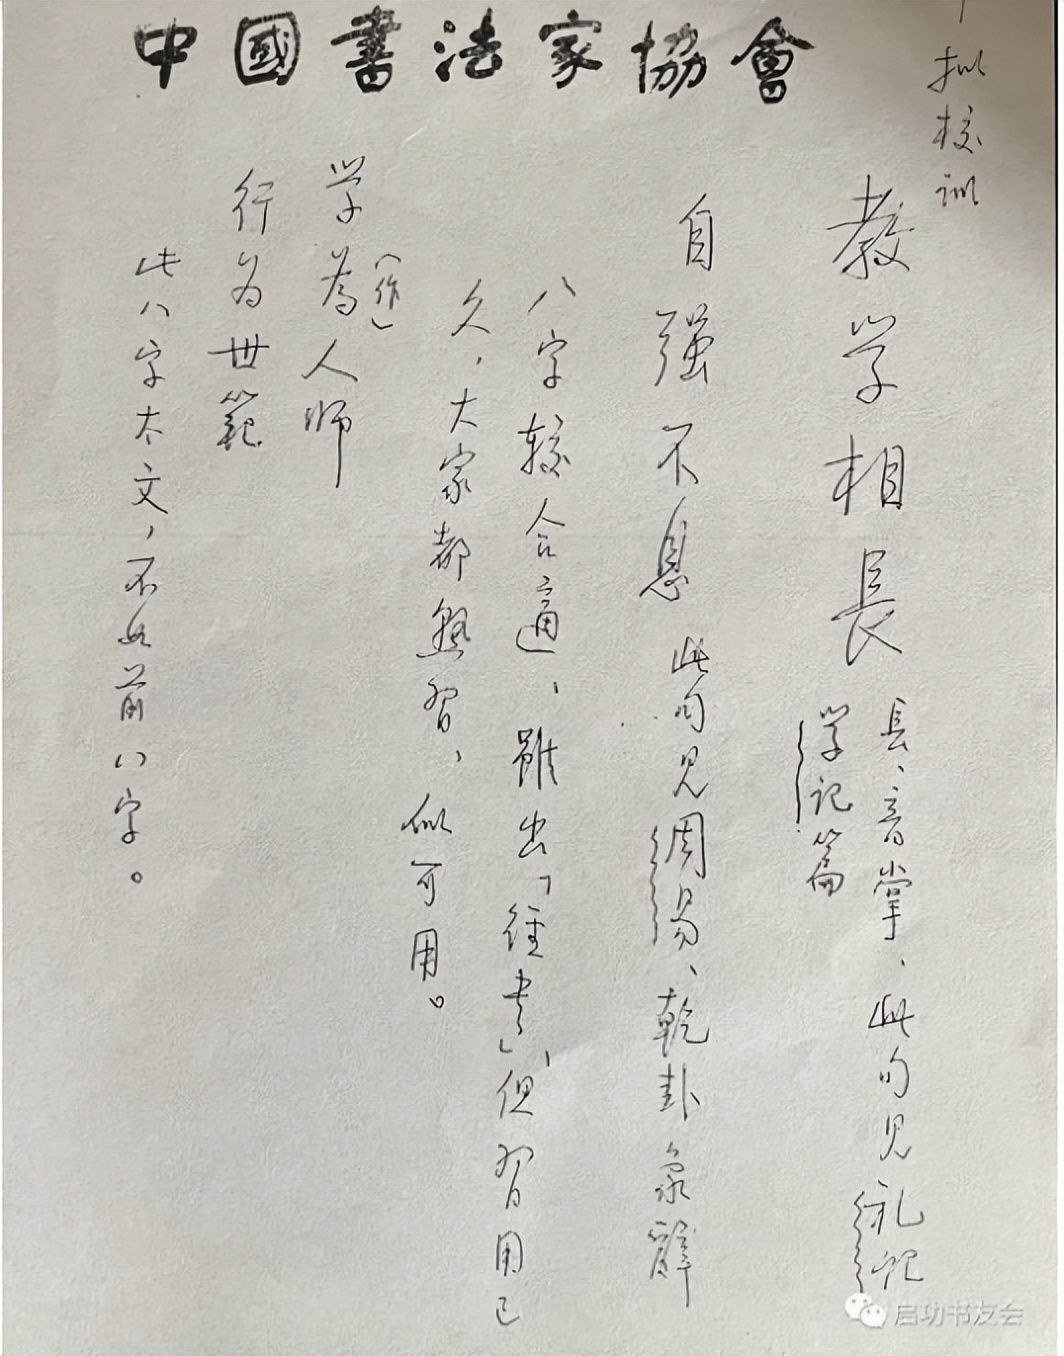 中國書法家協會
拟校训
教学相長
長、音掌、此句见礼记
学记篇
自强不息 此句见周易、乾卦象辞
八字较合适、雖出「经书」、但習用已
久，大家都熟習、似可用。
(作)
学为人师
行为世範
此八字太文，不如前八字。
启功书友会